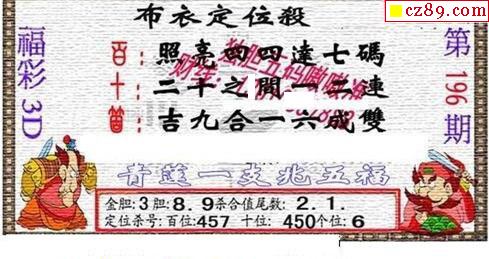 cz89.com
布衣定位殺
福彩3D
第196期
百：照亮四四達七碼
十：二千之間一二連
笛：吉九合一六成雙
青蓮一支兆五福
金胆:3胆:8.9杀合值尾数:2.1.
定位杀号:百位:457 十位:450个位:6